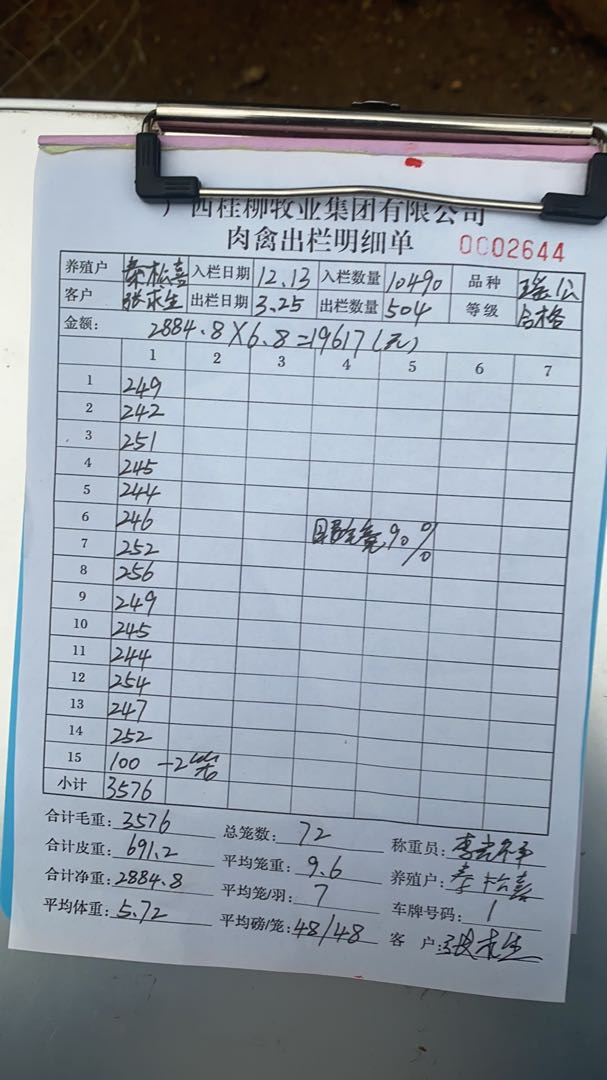 广西桂柳牧业集团有限公司
肉禽出栏明细单 0002644
养殖户 秦松喜 入栏日期 12.13 入栏数量 10490 品种 瑶公
客户 张求生 出栏日期 3.25 出栏数量 504 等级 合格
金额: 2884.8×6.8=19617(元)
1 2 3 4 5 6 7
1 249
2 242
3 251
4 245
5 244
6 246
90%
7 252
8 256
9 249
10 245
11 244
12 254
13 247
14 252
15 100 -2笼
小计 3576
合计毛重: 3576 总笼数: 72 称重员:
合计皮重: 691.2 平均笼重: 9.6 养殖户: 秦松喜
合计净重: 2884.8 平均笼/羽: 7 车牌号码: 1
平均体重: 5.72 平均磅/笼: 48/48 客 户: 张求生